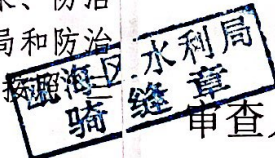 求、防治
局和防治
按照
区水利局
骑缝章
审查